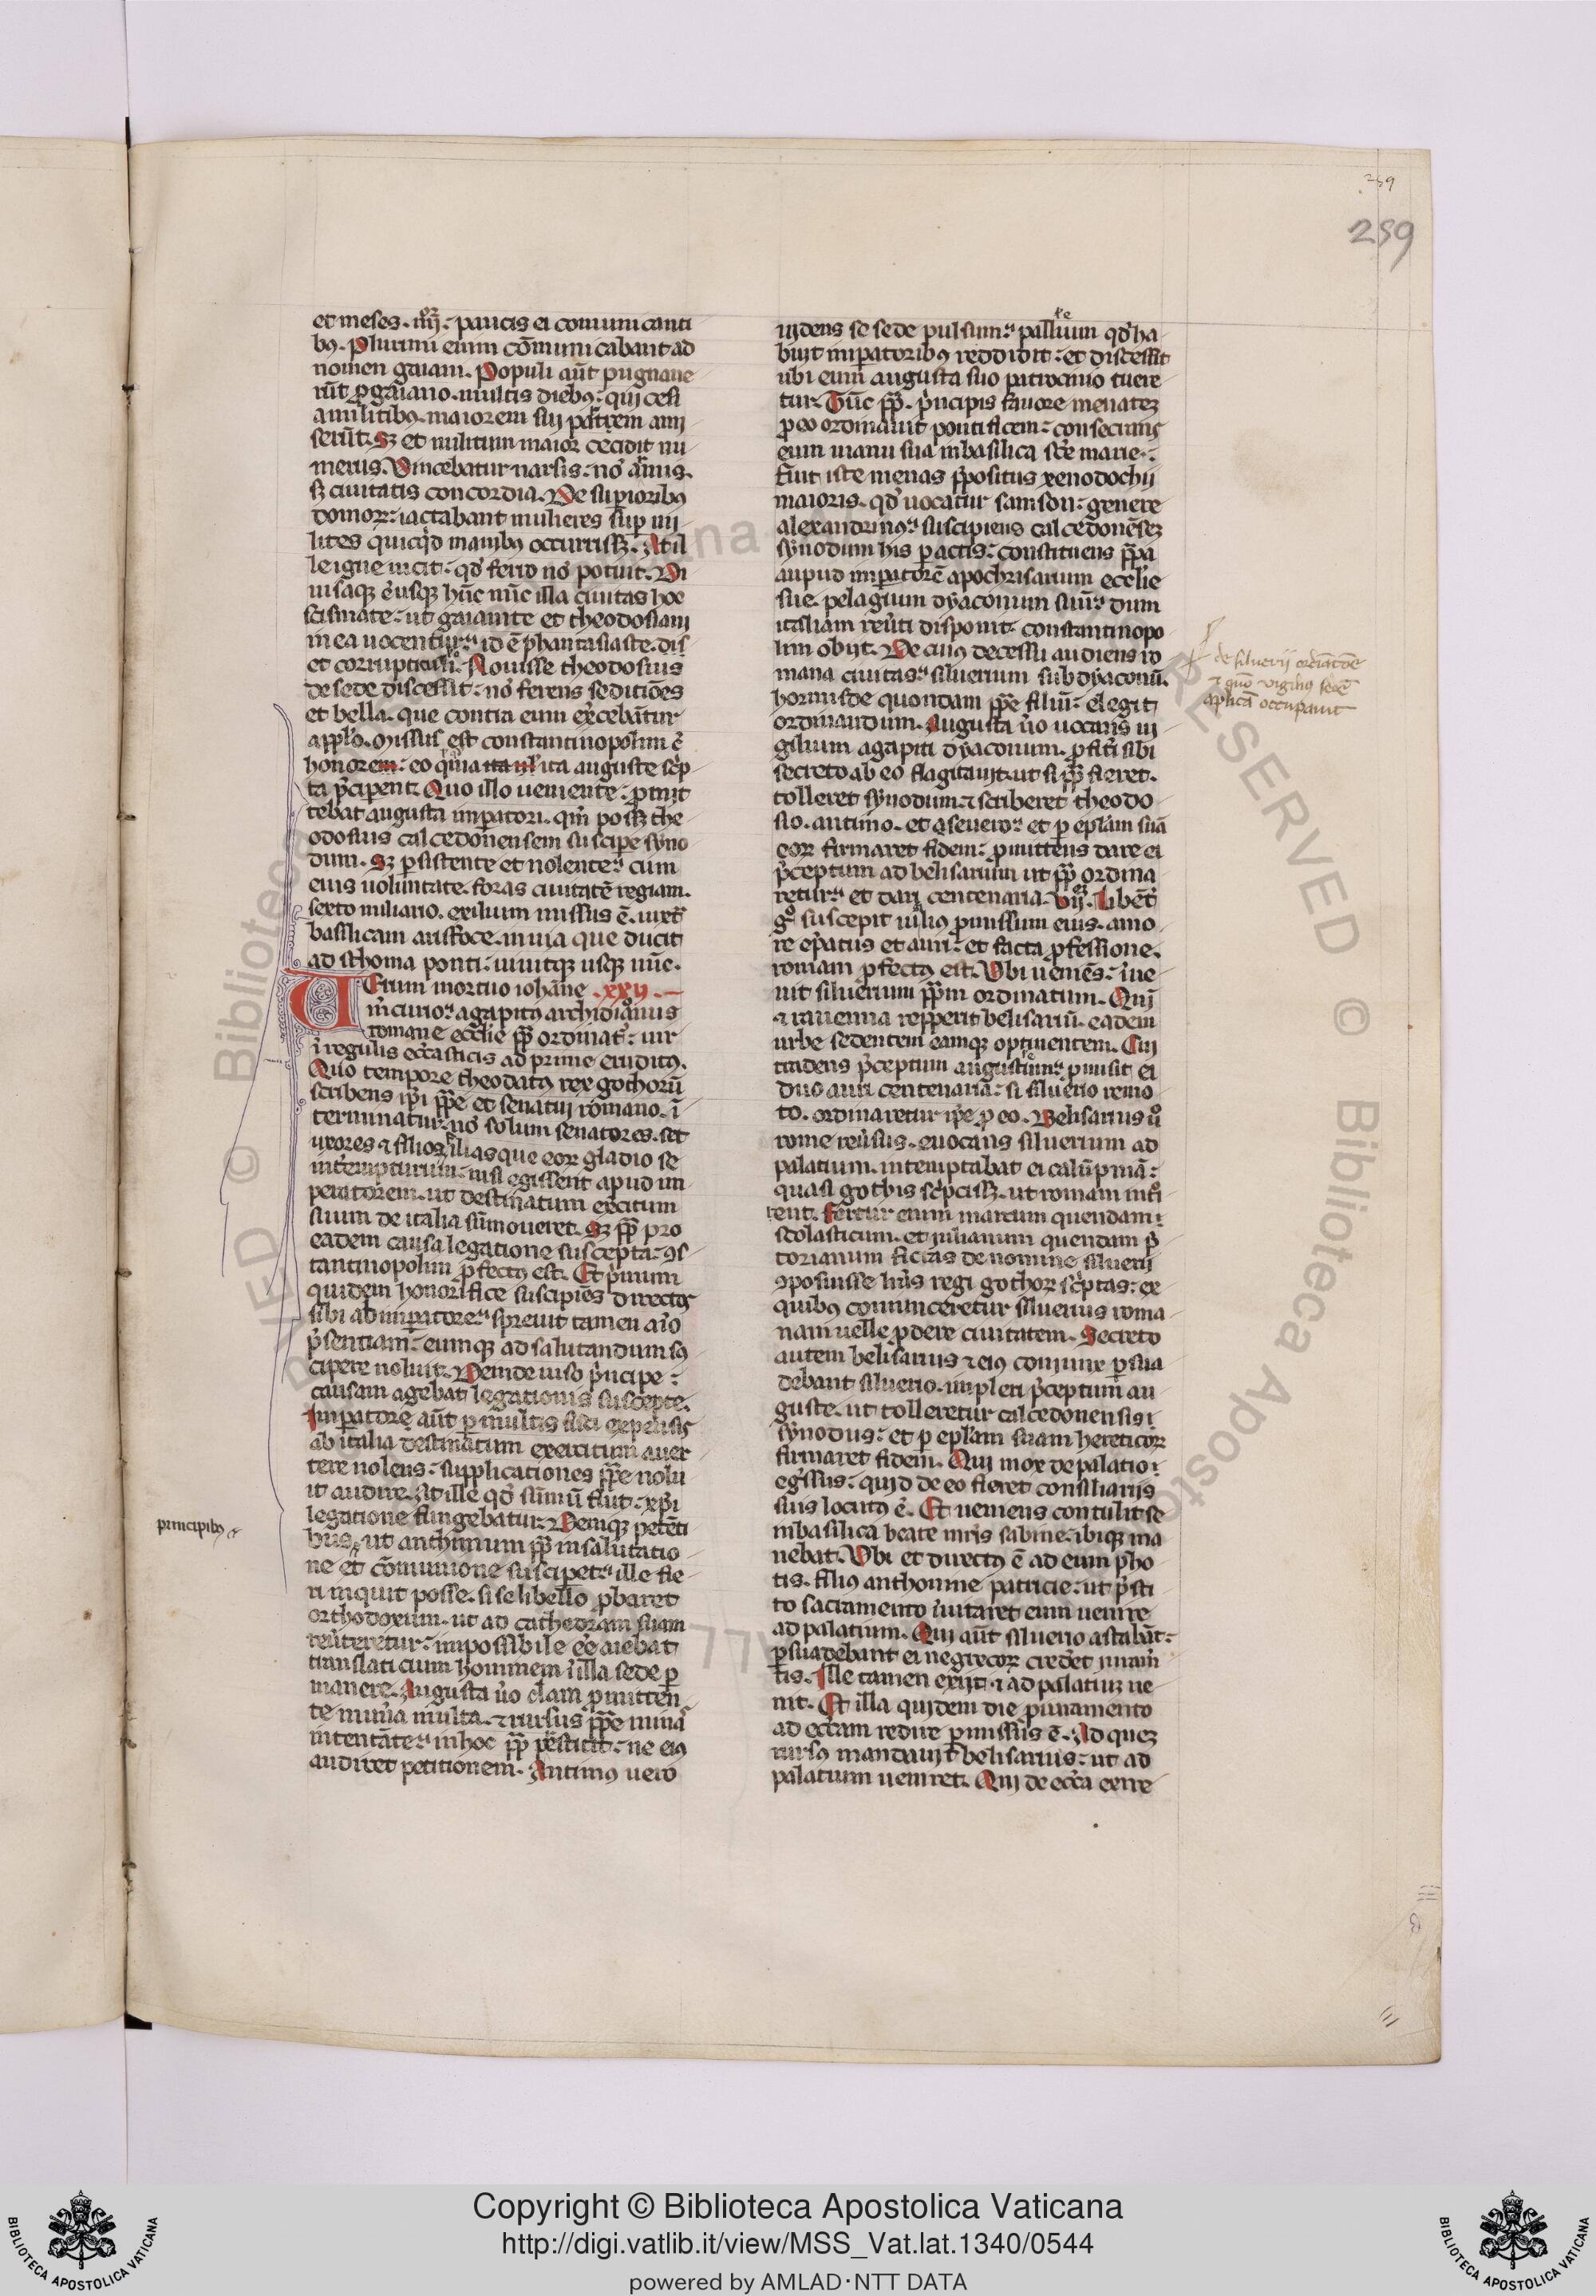 259
259
et meses. iiijor. paucis ei comunicanti
bꝯ. Plurimi enim com̄unicabant ad
nomen gaiani. Populi aūt pugnaue
rūt ꝓ gaiano. multis diebꝯ: qui cesi
a militibꝯ. maiorem sui partem ami
serūt. Sꝫ et militum maior cecidit nu
merus. Vincebatur narsis: nō armis.
sꝫ ciuitatis concordia. De suꝑioribꝯ
domoꝝ: iactabant mulieres suꝑ mi
lites quicqͥd manibꝯ occurrissꝫ. At il
le igne uicit: qd̓ ferro nō potuit. Di
uisaqꝫ usqꝫ hūc nūc illa ciuitas hoc
scismate: ut gaianite et theodosiani
in ea uocentur: id ē phantasiaste. dis
et corrupticoli. Nouisse theodosius
de sede discessit: nō ferens seditiōes
et bella. que contra eum exercebātur
a pplo. Missus est constantinopolim ē
honorem: eo quia ita auguste scͥp
ta pͥciperent. Quo illo ueniente: ꝓmit
tebat augusta imꝑatori. qm̄ possꝫ the
odosius calcedonensem suscipe syno
dum. Sꝫ ꝑsistente et nolente: cum
eius uoluntate. foras ciuitatē regiam.
sexto miliario. exilium missus ē. iuxta
basilicam aristoce. in uia que ducit
ad sthoma ponti: uiuitqꝫ usqꝫ nūc.
Terum mortuo iohāne .xxij.
mͥcurio: agapitꝯ archidiaconus
romane ecclie pp̄ ordinat᷒: uir
ī regulis ecclasticis ad prime eruditꝯ.
Quo tempore theodatꝯ rex gothorū
scribens ip̄i pp̄e et senatui romano. ī
terminatur: nō solum senatores. set
uxores et filios filiasque eoꝝ gladio se
interempturum: nisi egissent apud im
peratorem. ut destinatum exercitum
suum de italia sūmoueret. Sꝫ pp̄ pro
eadem causa legatione suscepta: ꝯs
tantinopolim ꝓfectꝯ est. Et pͥmum
quidem honorifice suscipiēs directos
sibi ab imꝑatore: spreuit tamen antimi
p̄sentiam: eumqꝫ ad salutandum sꝯ
cipere noluit. Deinde uiso pͥncipe:
causam agebat legationis suscepte.
Imꝑatore aūt ꝑ multis fisci expensis
ab italia destinatum exercitum auer
tere nolens: supplicationes pp̄e nolu
it audire. At ille qd̓ sūmū fuit: xp̄i
legatione fungebatur. Deniqꝫ petēti
bus ut anthimum pp̄ in salutatio
ne et cōmunione suscipet: ille fie
ri inquit posse. si se libello ꝓbaret
orthodoxum. ut ad cathedram suam
reuͥteretur: impossibile eē aiebat
translaticium hominem ī illa sede ꝑ
manere. Augusta uͦo clam ꝓmitten
te munͥa multa. et rursus pp̄e minas
intentāte: in hoc pp̄ perstitit: ne eiꝯ
audiret petitionem. Antimꝯ uero
principibꝯ
uidens se sede pulsum: pallium qd̓ ha
buit imꝑatoribꝯ reddidit: et discessit
ubi eum augusta suo patrocinio tuere
tur. Tūc pp̄. pͥncipis fauore menateꝫ
ꝓ eo ordinauit pontificem: consecrans
eum manu sua in basilica scē marie:
Fuit iste menas p̄positus xenodochii
maioris. qd̓ uocatur samson: genere
alexandrinꝯ: suscipiens calcedonēseꝫ
synodum his ꝑactis: constituens pp̄a
aupud imꝑatorē apochrisarium ecclie
sue. pelagium dyaconum suū: dum
italiam reuͥti disponit: constantinopo
lim obijt. De cuiꝯ decessu audiens ro
mana ciuitas: siluerium subdyaconū.
hormisde quondam pp̄e filiū: elegit
ordinandum. Augusta uͦo uocans ui
gilium agapiti dyaconum. ꝓfiteri sibi
secreto ab eo flagitauit. ut si pp̄ fieret.
tolleret synodum. et scriberet theodo
sio. antimo. et a seuero: et ꝑ epl̄am suā
eoꝝ firmaret fidem: ꝓmittens dare ei
p̄ceptum ad belisarium ut pp̄ ordina
retur: et dari centenaria. vij. Libēt̓
gͦ suscepit uigilius ꝓmissum eius. amo
re epatus et auri: et facta ꝓfessione.
romam ꝓfectꝯ est. Vbi ueniēs: inue
nit siluerium pp̄m ordinatum. Qui
et rauenna repperit belisariū. eadem
urbe sedentem eamqꝫ optinentem. Cui
tradens p̄ceptum auguste: ꝓmisit ei
duo auri centenaria: si siluerio remo
to. ordinaretur ip̄e ꝓ eo. Belisarius uͦ
rome reuͥsus. euocans siluerium ad
palatium. intemptabat ei calūpniā:
quasi gothis scͥpsissꝫ. ut romam introi
rent. Fertur enim marcum quendam
scolasticum. et iulianum quendam p̄
torianum fictas de nomine siluerij
ꝯposuisse līas regi gothoꝝ scͥptas: ex
quibꝯ conuinceretur siluerius roma
nam uelle ꝓdere ciuitatem. Secreto
autem belisarius et eiꝯ coniunx ꝑsua
debant siluerio. impleri p̄ceptum au
guste. ut tolleretur calcedonensis
synodus: et ꝑ epl̄am suam hereticoꝝ
firmaret fidem. Qui mox de palatio
egͥssus: quid de eo fieret consiliariis
suis locutꝯ ē. Et ueniens contulit se
in basilica beate mr̄is sabine. ibiqꝫ ma
nebat. Vbi et directꝯ ē ad eum pho
tis. filiꝯ anthonine patricie: ut p̄sti
to sacramento inuitaret eum uenire
ad palatium. Qui aūt siluerio astabāt:
ꝑsuadebant ei ne grecoꝝ cred̓et iuram̄
tis. Ille tamen exijt. et ad palatiuꝫ ue
nit. Et illa quidem die ꝓ iuramento
ad eccl̄am redire ꝑmissus ē. Ad queꝫ
rursꝯ mandauit belisarius: ut ad
palatium ueniret. Qui de eccl̄a exire
de siluerij ordiatōe
et quō vigilius sedē
aplicā occupauit
Copyright © Biblioteca Apostolica Vaticana
http://digi.vatlib.it/view/MSS_Vat.lat.1340/0544
powered by AMLAD·NTT DATA
BIBLIOTECA APOSTOLICA VATICANA
BIBLIOTECA APOSTOLICA VATICANA